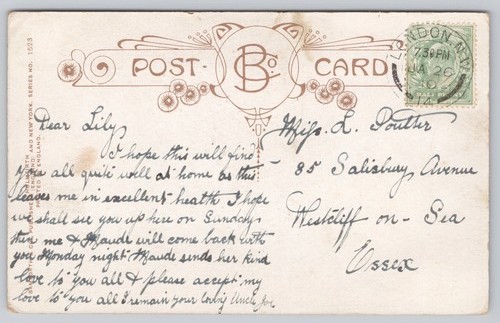 POST CARD
B Co.
LONDON N.W.
7.30 PM
JA 26
10
Dear Lily,
I hope this will find
you all quite well at home as this
leaves me in excellent health I hope
we shall see you up here on Sunday
then me & Maude will come back with
you Monday night Maude sends her kind
love to you all & please accept my
love to you all I remain your loving Uncle Joe
Miss L. Poulter
85 Salisbury Avenue
Westcliff on - Sea
Essex
AND NEW YORK. SERIES NO. 1523
ENGLAND.